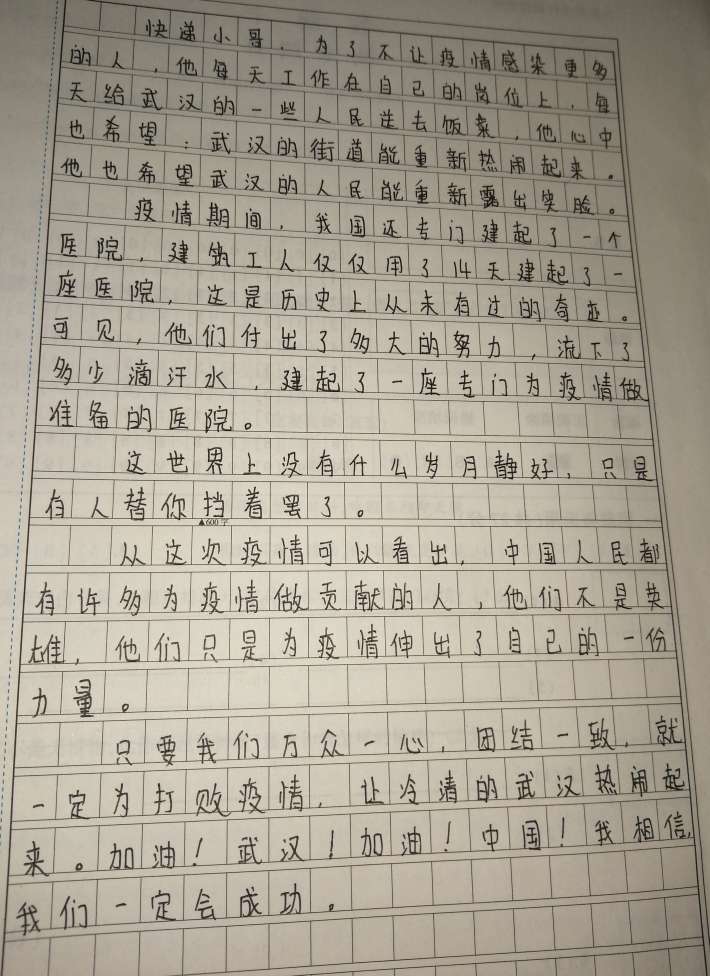 快递小哥，为了不让疫情感染更多
的人，他每天工作在自己的岗位上，每
天给武汉的一些人民送去饭菜，他心中
也希望：武汉的街道能重新热闹起来。
他也希望武汉的人民能重新露出笑脸。
疫情期间，我国还专门建起了一个
医院，建筑工人仅仅用了14天建起了一
座医院，这是历史上从未有过的奇迹。
可见，他们付出了多大的努力，流下了
多少滴汗水，建起了一座专门为疫情做
准备的医院。
这世界上没有什么岁月静好，只是
有人替你挡着罢了。
▲600字
从这次疫情可以看出，中国人民都
有许多为疫情做贡献的人，他们不是英
雄，他们只是为疫情伸出了自己的一份
力量。
只要我们万众一心，团结一致，就
一定为打败疫情，让冷清的武汉热闹起
来。加油！武汉！加油！中国！我相信，
我们一定会成功。